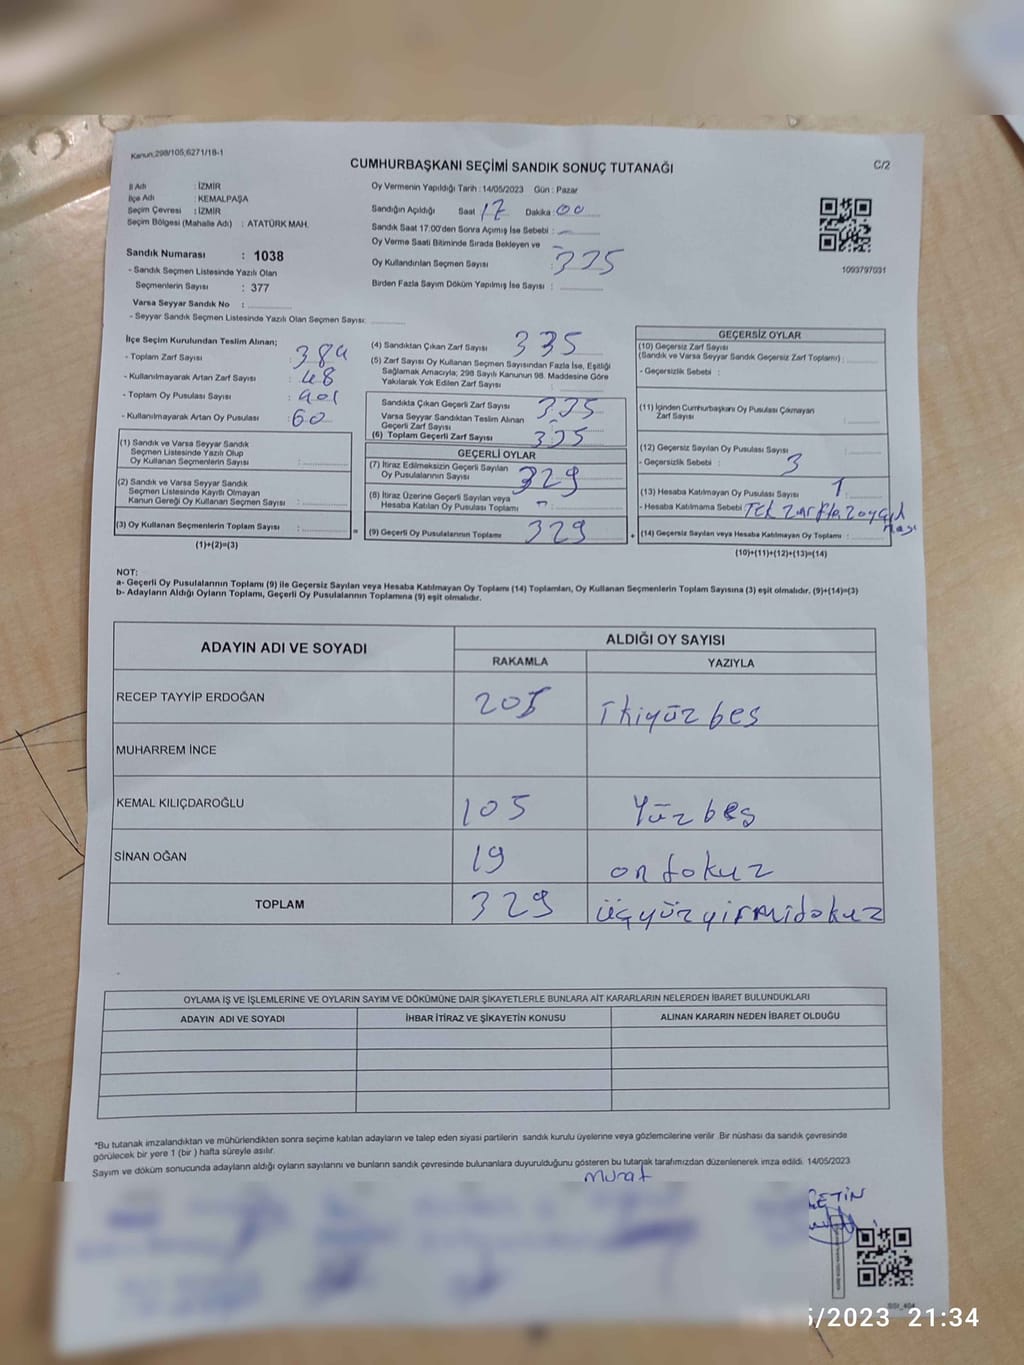 Kanun;298/105;6271/18-1
CUMHURBAŞKANI SEÇİMİ SANDIK SONUÇ TUTANAĞI
C/2
İl Adı : İZMİR
İlçe Adı : KEMALPAŞA
Seçim Çevresi : İZMİR
Seçim Bölgesi (Mahalle Adı) : ATATÜRK MAH.
Oy Vermenin Yapıldığı Tarih : 14/05/2023 Gün : Pazar
Sandığın Açıldığı Saat 17 Dakika :00
Sandık Saat 17:00'den Sonra Açımış İse Sebebi :
Oy Verme Saati Bitiminde Sırada Bekleyen ve
Oy Kullandırılan Seçmen Sayısı : 335
Birden Fazla Sayım Döküm Yapılmış İse Sayısı :
1093797031
Sandık Numarası : 1038
- Sandık Seçmen Listesinde Yazılı Olan
Seçmenlerin Sayısı : 377
Varsa Seyyar Sandık No :
- Seyyar Sandık Seçmen Listesinde Yazılı Olan Seçmen Sayısı:
İlçe Seçim Kurulundan Teslim Alınan;
- Toplam Zarf Sayısı :
- Kullanılmayarak Artan Zarf Sayısı : 48
- Toplam Oy Pusulası Sayısı :
- Kullanılmayarak Artan Oy Pusulası :60
(1) Sandık ve Varsa Seyyar Sandık
Seçmen Listesinde Yazılı Olup
Oy Kullanan Seçmenlerin Sayısı :
(2) Sandık ve Varsa Seyyar Sandık
Seçmen Listesinde Kayıtlı Olmayan
Kanun Gereği Oy Kullanan Seçmen Sayısı :
(3) Oy Kullanan Seçmenlerin Toplam Sayısı :
(1)+(2)=(3)
(4) Sandıktan Çıkan Zarf Sayısı : 335
(5) Zarf Sayısı Oy Kullanan Seçmen Sayısından Fazla İse, Eşitliği
Sağlamak Amacıyla; 298 Sayılı Kanunun 98. Maddesine Göre
Yakılarak Yok Edilen Zarf Sayısı :
Sandıkta Çıkan Geçerli Zarf Sayısı : 335
Varsa Seyyar Sandıktan Teslim Alınan
Geçerli Zarf Sayısı :
(6) Toplam Geçerli Zarf Sayısı : 335
GEÇERLİ OYLAR
(7) İtiraz Edilmeksizin Geçerli Sayılan
Oy Pusulalarının Sayısı : 329
(8) İtiraz Üzerine Geçerli Sayılan veya
Hesaba Katılan Oy Pusulası Toplamı :
= (9) Geçerli Oy Pusulalarının Toplamı : 329
GEÇERSİZ OYLAR
(10) Geçersiz Zarf Sayısı
(Sandık ve Varsa Seyyar Sandık Geçersiz Zarf Toplamı) :
- Geçersizlik Sebebi :
(11) İçinden Cumhurbaşkanı Oy Pusulası Çıkmayan
Zarf Sayısı :
(12) Geçersiz Sayılan Oy Pusulası Sayısı :
- Geçersizlik Sebebi : 3
(13) Hesaba Katılmayan Oy Pusulası Sayısı : 1
- Hesaba Katılmama Sebebi : Tek zarfta 2 oy
+ (14) Geçersiz Sayılan veya Hesaba Katılmayan Oy Toplamı :
(10)+(11)+(12)+(13)=(14)
NOT:
a- Geçerli Oy Pusulalarının Toplamı (9) ile Geçersiz Sayılan veya Hesaba Katılmayan Oy Toplamı (14) Toplamları, Oy Kullanan Seçmenlerin Toplam Sayısına (3) eşit olmalıdır. (9)+(14)=(3)
b- Adayların Aldığı Oyların Toplamı, Geçerli Oy Pusulalarının Toplamına (9) eşit olmalıdır.
ADAYIN ADI VE SOYADI
ALDIĞI OY SAYISI
RAKAMLA YAZIYLA
RECEP TAYYİP ERDOĞAN 205 İkiyüz beş
MUHARREM İNCE
KEMAL KILIÇDAROĞLU 105 Yüz beş
SİNAN OĞAN 19 on dokuz
TOPLAM 329 üçyüzyirmidokuz
OYLAMA İŞ VE İŞLEMLERİNE VE OYLARIN SAYIM VE DÖKÜMÜNE DAİR ŞİKAYETLERLE BUNLARA AİT KARARLARIN NELERDEN İBARET BULUNDUKLARI
ADAYIN ADI VE SOYADI İHBAR İTİRAZ VE ŞİKAYETİN KONUSU ALINAN KARARIN NEDEN İBARET OLDUĞU
*Bu tutanak imzalandıktan ve mühürlendikten sonra seçime katılan adayların ve talep eden siyasi partilerin sandık kurulu üyelerine veya gözlemcilerine verilir .Bir nüshası da sandık çevresinde
görülecek bir yere 1 (bir ) hafta süreyle asılır.
Sayım ve döküm sonucunda adayların aldığı oyların sayılarını ve bunların sandık çevresinde bulunanlara duyurulduğunu gösteren bu tutanak tarafımızdan düzenlenerek imza edildi. 14/05/2023
Murat
ÇETİN
5/2023 21:34